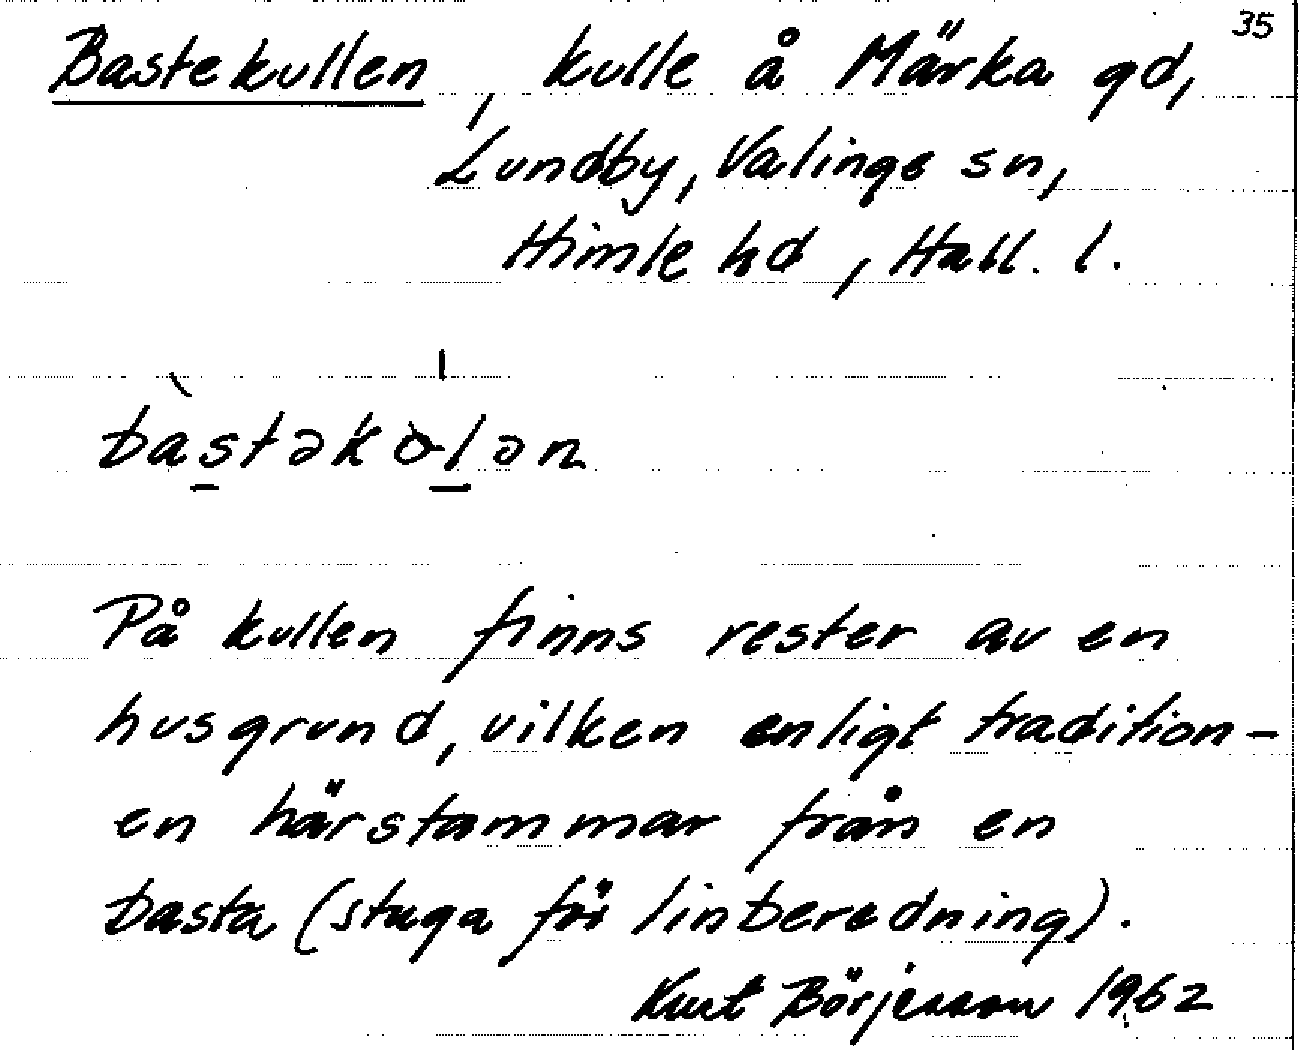 35
Bastekullen, kulle å Märka gd,
Lundby, Valinge sn,
Himle hd, Hall. l.
bàstəkòlən
På kullen finns rester av en
husgrund, vilken enligt tradition-
en härstammar från en
basta (stuga för linberedning).
Kurt Börjesson 1962